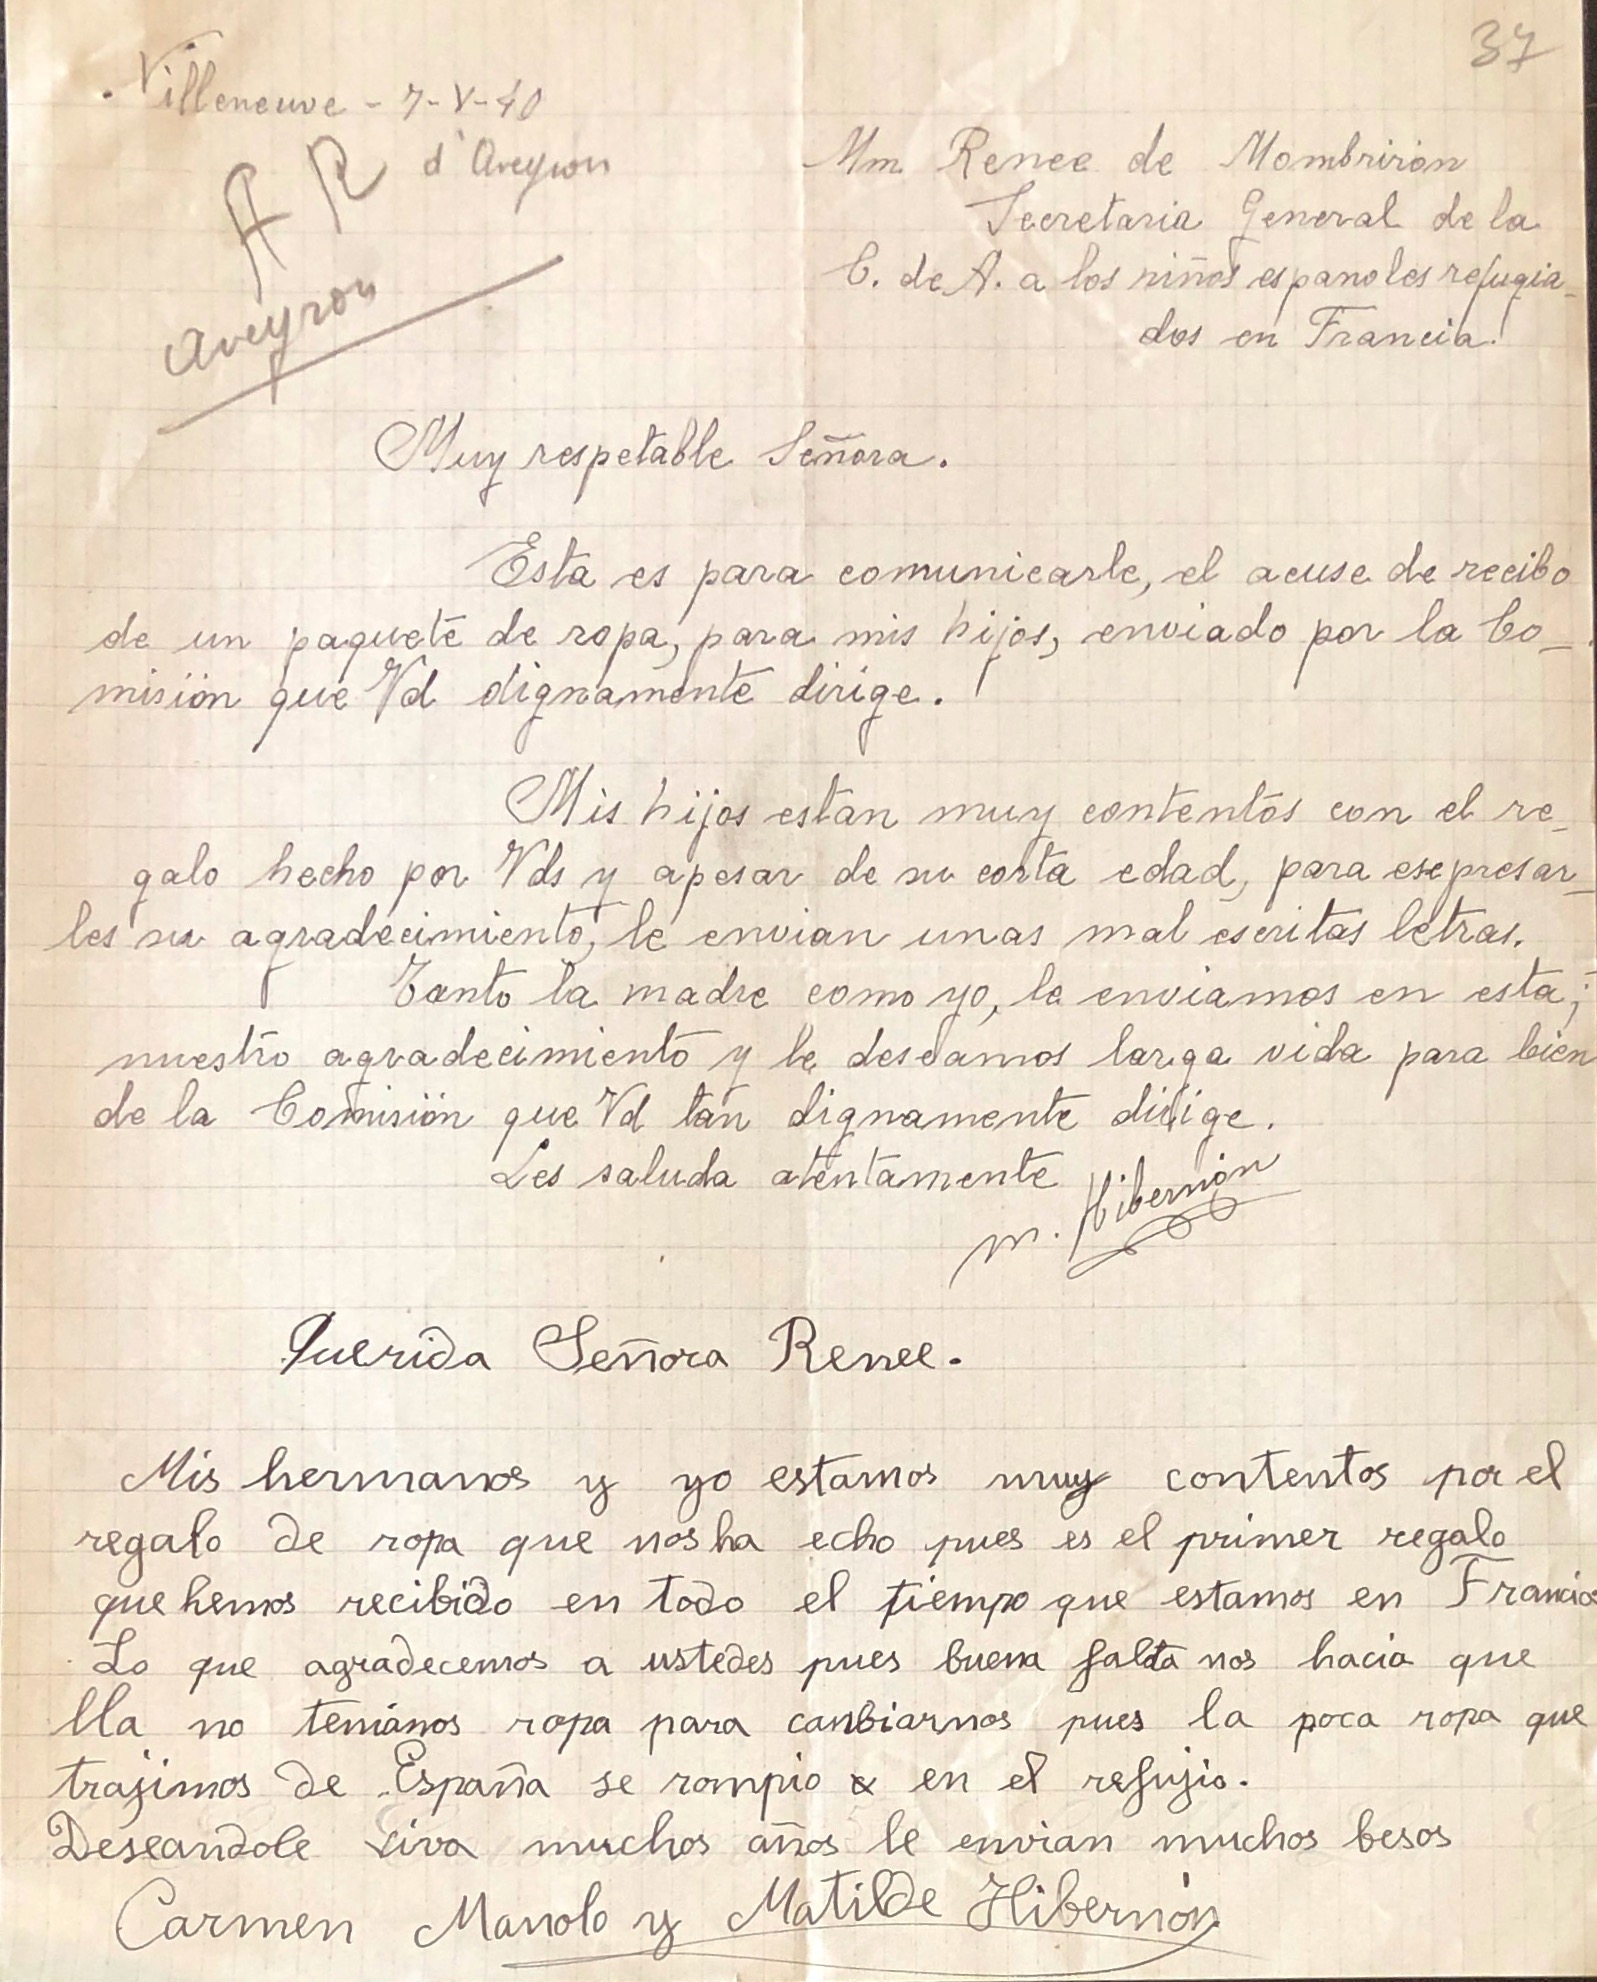 37
Villeneuve - 7-V-40
d'Aveyron
A R
Aveyron
Mm Renee de Mombrirón
Secretaria General de la
C. de A. a los niños espanoles refugia-
dos en Francia.
Muy respetable Señora.
Esta es para comunicarle, el acuse de recibo
de un paquete de ropa, para mis hijos, enviado por la Co-
misión que Vd dignamente dirige.
Mis hijos estan muy contentos con el re-
galo hecho por Vds y apesar de su corta edad, para esepresar-
les su agradecimiento, le envian unas mal escritas letras.
Tanto la madre como yo, le enviamos en esta;
nuestro agradecimiento y le deseamos larga vida para bien
de la Comisión que Vd tan dignamente dirige.
Les saluda atentamente
M. Hibernón
Querida Señora Renee.
Mis hermanos y yo estamos muy contentos por el
regalo de ropa que nos ha echo pues es el primer regalo
que hemos recibido en todo el tiempo que estamos en Francia
Lo que agradecemos a ustedes pues buena falta nos hacia que
lla no teniamos ropa para canbiarnos pues la poca ropa que
trajimos de España se rompio en el refujio.
Deseandole viva muchos años le envian muchos besos
Carmen Manolo y Matilde Hibernón